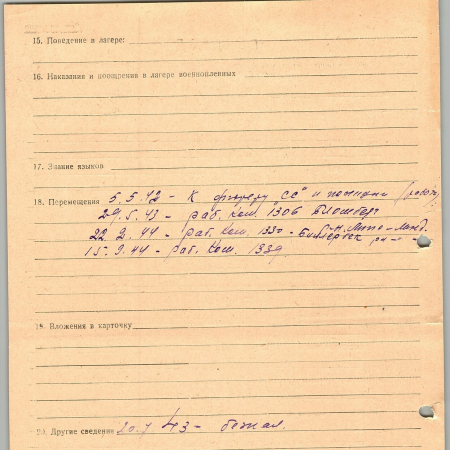 15. Поведение в лагере:
16. Наказания и поощрения в лагере военнопленных
17. Знание языков
18. Перемещения 5.5.42 - К фюреру "СС" и полиции
29.5.43 - раб. ком. 1306 Бломберг
22.2.44 - раб. ком. 1330 - Биллербек
15.9.44 - раб. ком. 1339
19. Вложения в карточку
20. Другие сведения 20.7 43 - бежал.